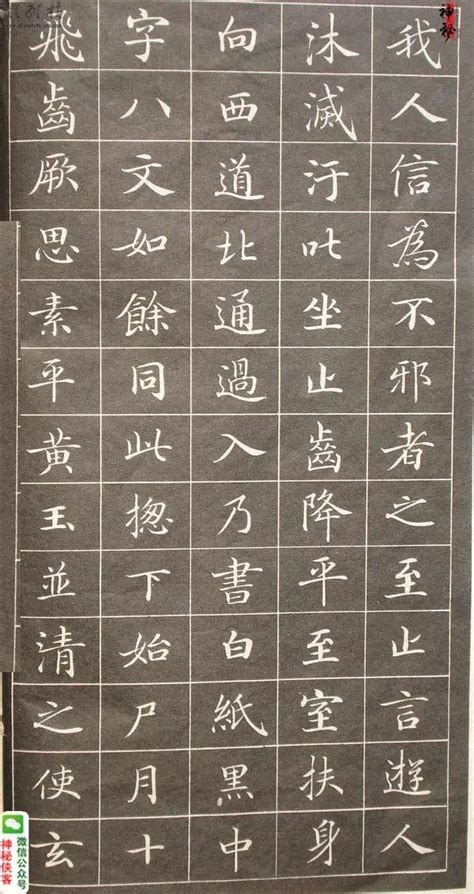 我人信為不邪者之至止言遊人
沐滅汙叱坐止齒降平至室扶身
向西道北通過入乃書白紙黑中
字八文如餘同此揔下始尸月十
飛齒厥思素平黃玉並清之使玄
神秘
微信公众号
神秘侠客